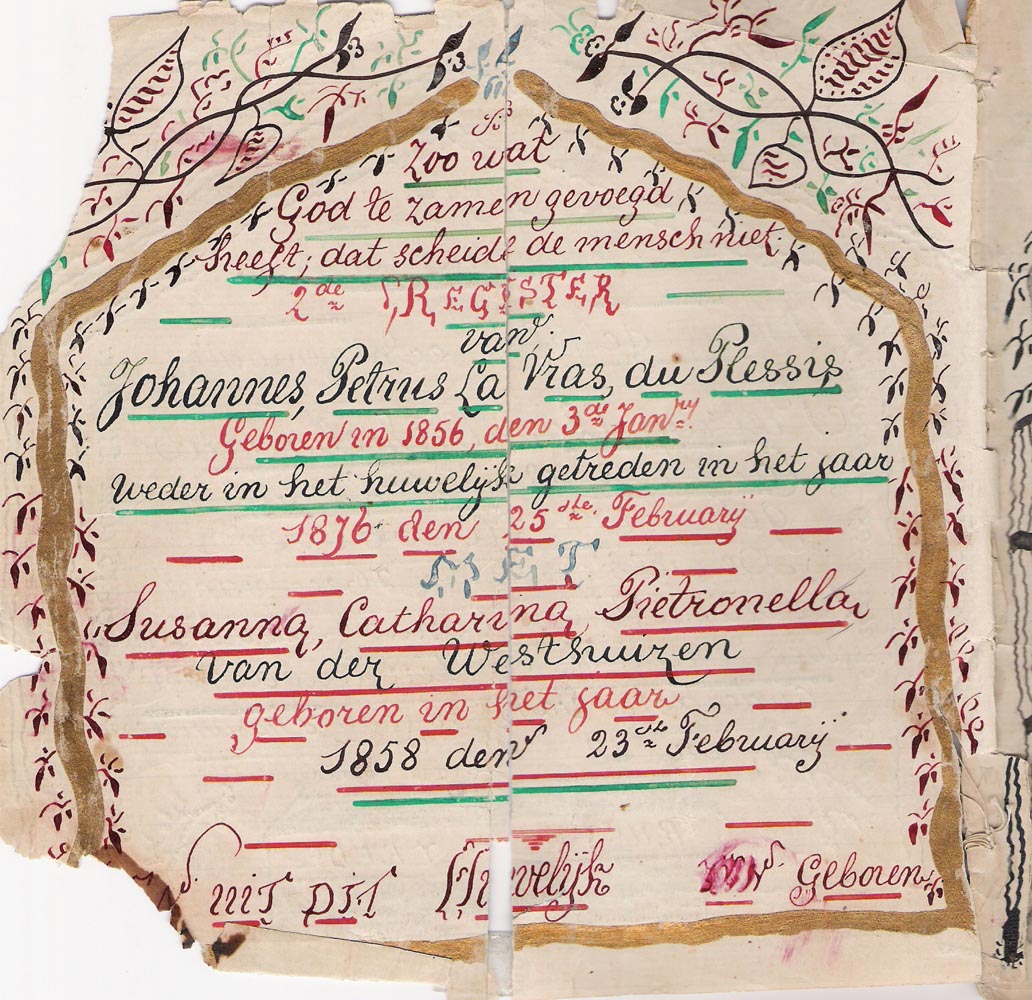 Zoo wat
God te zamen gevoegd,
heeft; dat scheidt de mensch niet.
2de REGISTER
van
Johannes, Petrus La Vras, du Plessis
Geboren in 1856, den 3de Janry.
weder in het huwelijk getreden in het jaar
1876 den 25ste February
MET
Susanna, Catharina, Pietronella,
van der Westhuizen
geboren in het jaar
1858 den 23ste February
uit DIT Huwelijk Geboren